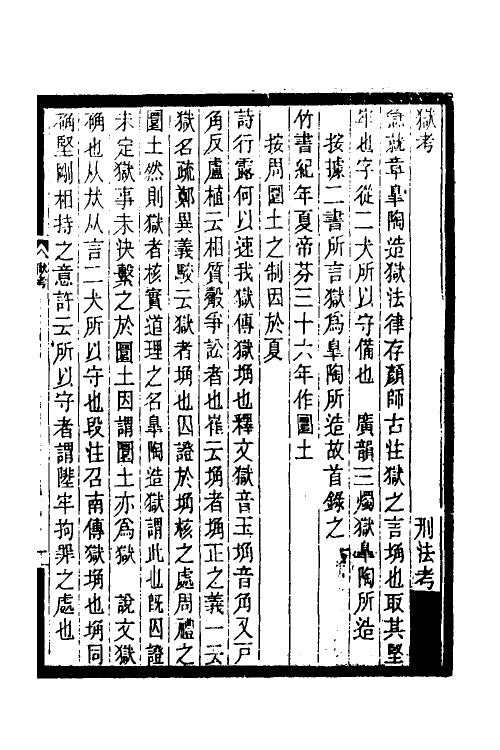 獄考
刑法考
急就章臯陶造獄法律存顏師古注獄之言埆也取其堅
牢也字從二犬所以守備也　廣韻三燭獄臯陶所造
按據二書所言獄爲臯陶所造故首錄之
竹書紀年夏帝芬三十六年作圜土
按周圜土之制因於夏
詩行露何以速我獄傳獄埆也釋文獄音玉埆音角又戸
角反盧植云相質觳爭訟者也崔云埆者埆正之義一云
獄名疏鄭異義駁云獄者埆也囚證於埆核之處周禮之
圜土然則獄者核實道理之名臯陶造獄謂此也旣囚證
未定獄事未決繫之於圜土因謂圜土亦爲獄　說文獄
确也从㹜从言二犬所以守也段注召南傳獄埆也埆同
确堅剛相持之意許云所以守者謂陛牢拘罪之處也
獄考